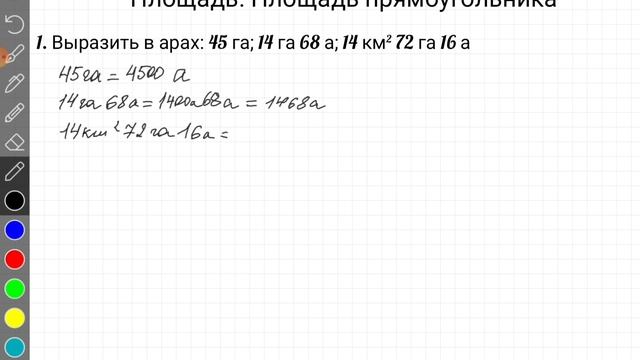 Площадь. Площадь прямоугольника
1. Выразить в арах: 45 га; 14 га 68 а; 14 км² 72 га 16 а
45га = 4500 а
14га 68а = 1400а 68а = 1468а
14км² 72га 16а =